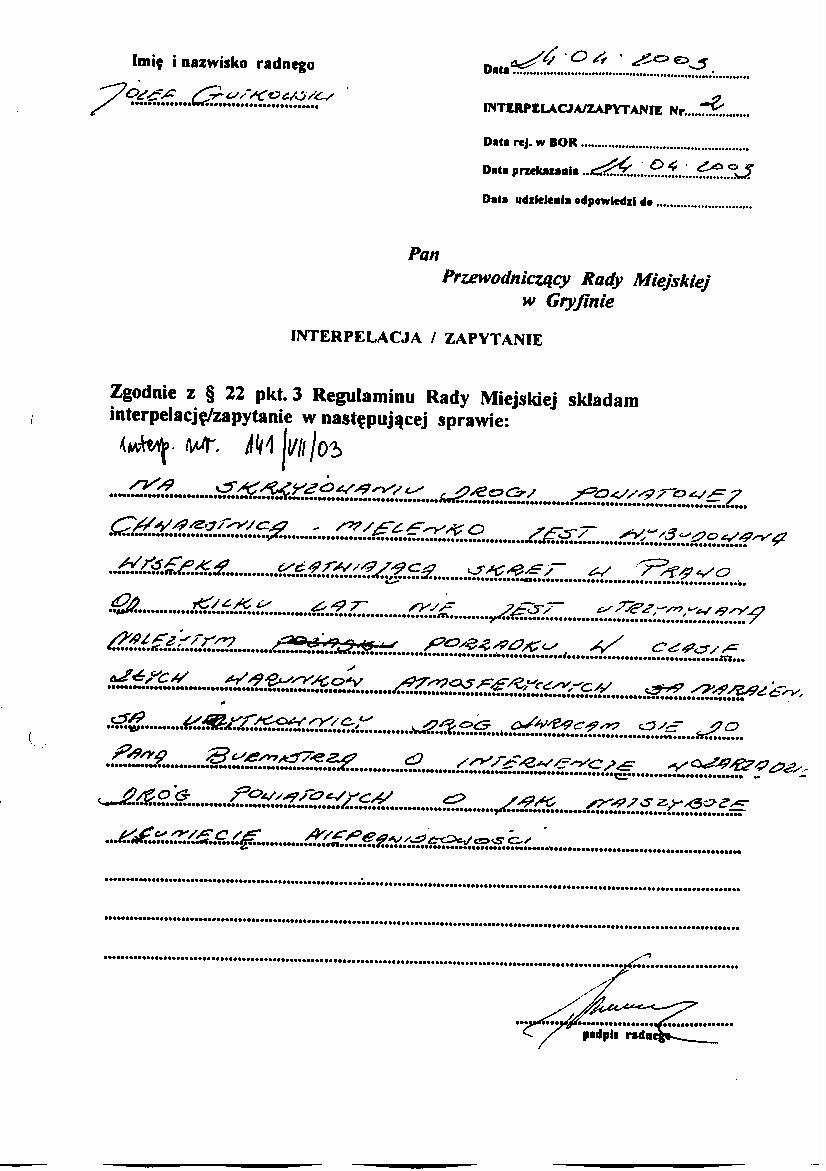 Imię i nazwisko radnego
JÓZEF GUTKOWSKI
Data 14.04.2003.
INTERPELACJA/ZAPYTANIE Nr. 2
Data rej. w BOR
Data przekazania 14.04.2003
Data udzielenia odpowiedzi do
Pan
Przewodniczący Rady Miejskiej
w Gryfinie
INTERPELACJA / ZAPYTANIE
Zgodnie z § 22 pkt. 3 Regulaminu Rady Miejskiej składam
interpelację/zapytanie w następującej sprawie:
Interp. nr. 141/VII/03
NA SKRZYŻOWANIU DROGI POWIATOWEJ
CHWARSTNICA - MIELENKO JEST WYBUDOWANA
WYSEPKA UŁATWIAJĄCA SKRĘT W PRAWO.
OD KILKU LAT NIE JEST UTRZYMYWANA
NALEŻYTYM PORZĄDKU, W CZASIE
ZŁYCH WARUNKÓW ATMOSFERYCZNYCH NARAŻEN.
SĄ UŻYTKOWNICY DRÓG ZWRACAM SIĘ DO
PANA BURMISTRZA O INTERWENCJE W ZARZĄDZ.
DRÓG POWIATOWYCH O JAK NAJSZYBSZE
USUNIĘCIE NIEPRAWIDŁOWOŚCI
podpis radnego